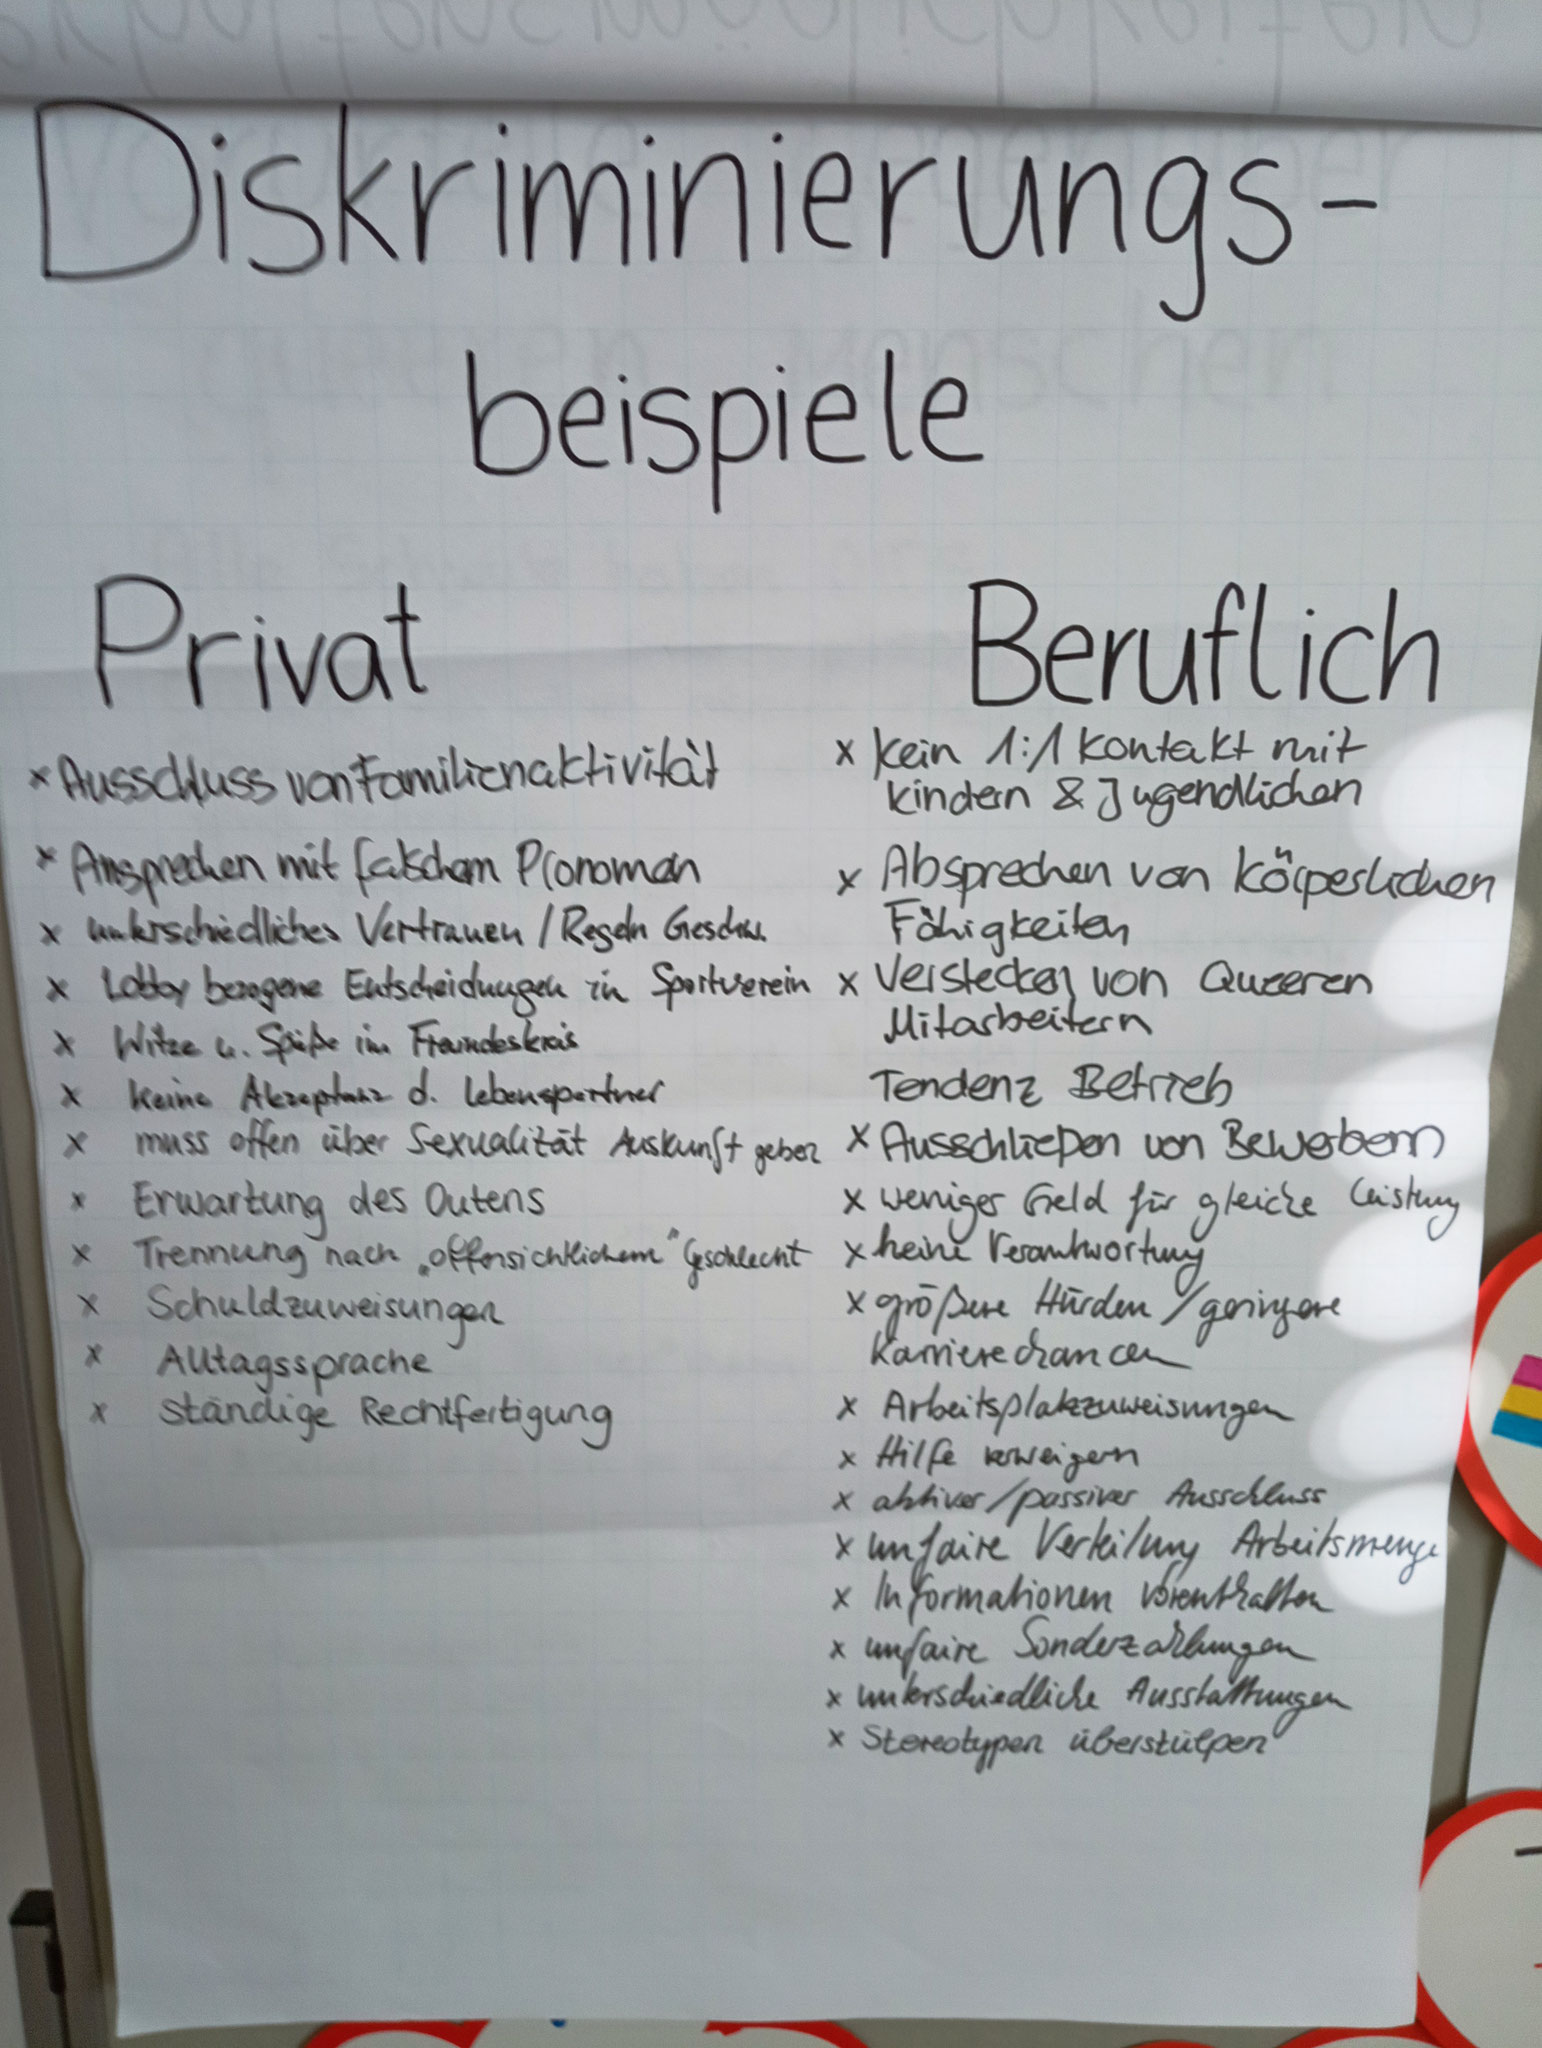 Diskriminierungs-
beispiele
Privat
x Ausschluss von Familienaktivität
x Ansprechen mit falschem Pronomen
x unterschiedliches Vertrauen / Regeln Geschw.
x Lobby bezogene Entscheidungen in Sportverein
x Witze u. Späße im Freundeskreis
x keine Akzeptanz d. Lebenspartner
x muss offen über Sexualität Auskunft geben
x Erwartung des Outens
x Trennung nach „offensichtlichem“ Geschlecht
x Schuldzuweisungen
x Alltagssprache
x ständige Rechtfertigung
Beruflich
x kein 1:1 Kontakt mit
Kindern & Jugendlichen
x Absprechen von Körperlichen
Fähigkeiten
x Verstecken von Queeren
Mitarbeitern
Tendenz Betrieb
x Ausschließen von Bewerbern
x weniger Geld für gleiche Leistung
x keine Verantwortung
x größere Hürden / geringere
Karrierechancen
x Arbeitsplatzzuweisungen
x Hilfe verweigern
x aktiver/passiver Ausschluss
x unfaire Verteilung Arbeitsmenge
x Informationen vorenthalten
x unfaire Sonderzahlungen
x unterschiedliche Ausstattungen
x Stereotypen überstülpen